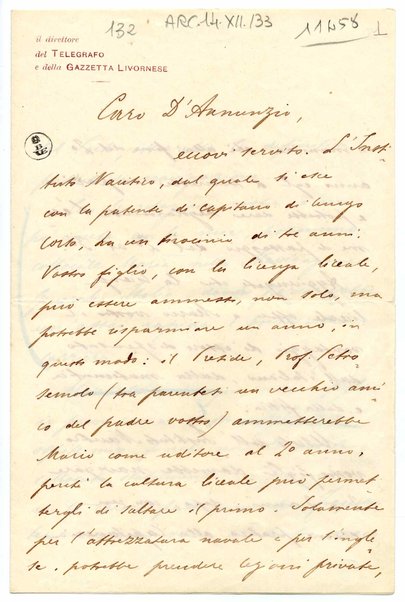 132
ARC.14.XII./33
11458
1
il direttore
del TELEGRAFO
e della GAZZETTA LIVORNESE
Caro D'Annunzio,
eccovi servito. L'Isti
tuto Nautico, dal quale si esce
con la patente di capitano di lungo
corso, ha un tirocinio di tre anni.
Vostro figlio, con la licenza liceale,
può essere ammesso, non solo, ma
potrebbe risparmiare un anno, in
questo modo: il Preside, Prof. Petro
semolo (tra parentesi un vecchio ami
co del padre vostro) ammetterebbe
Mario come uditore al 2º anno,
perchè la cultura liceale può permet
tergli di saltare il primo. Solamente
per l'attrezzatura navale e per l'ingle
se potrebbe prendere lezioni private,